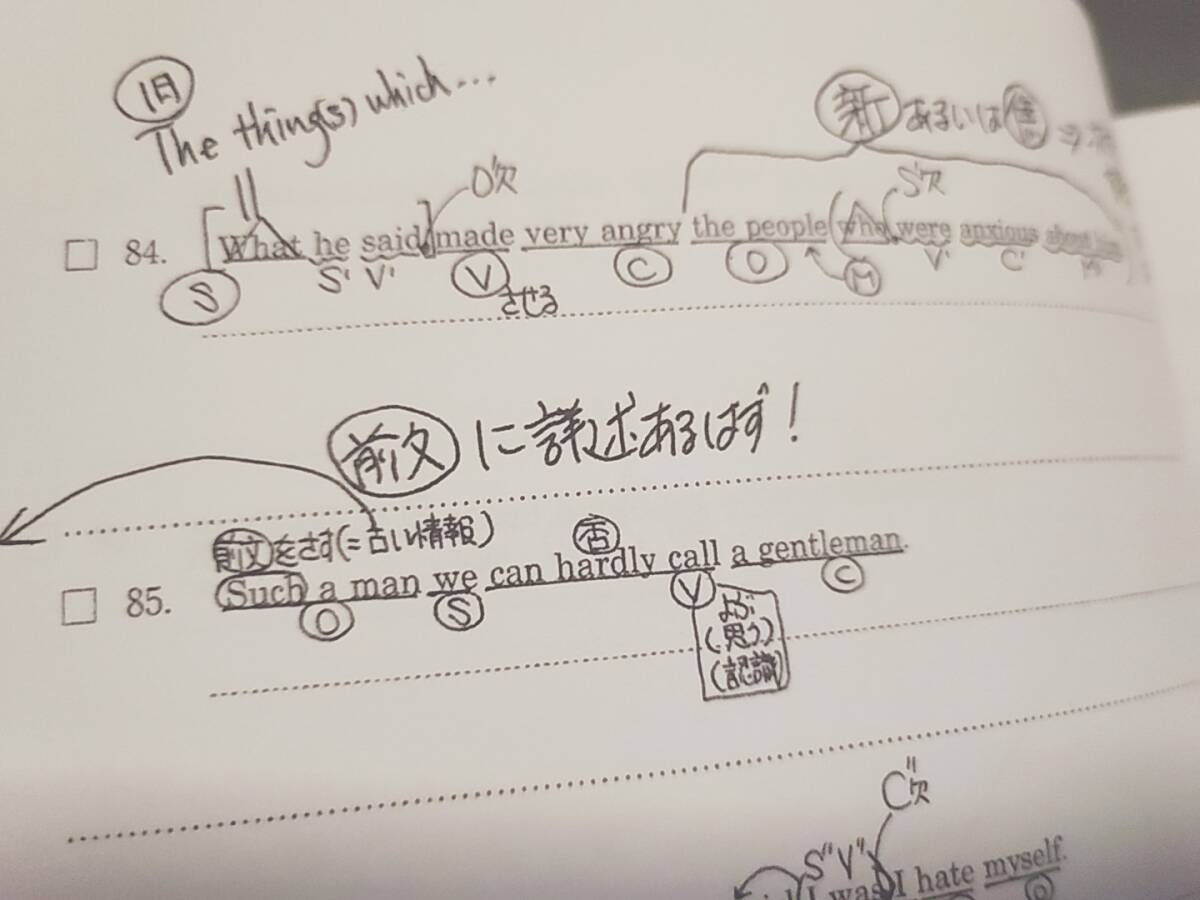 旧
The thing(s) which...
新 あるいは
O'欠
S'欠
84. What he said made very angry the people who were anxious about
S S' V' V C O M V' C'
させる
前文 に詳述あるはず!
前文をさす(=古い情報)
否
85. Such a man we can hardly call a gentleman.
O S V C
よぶ
(思う)
(認識)
C"欠
S" V"
I was I hate myself.
O